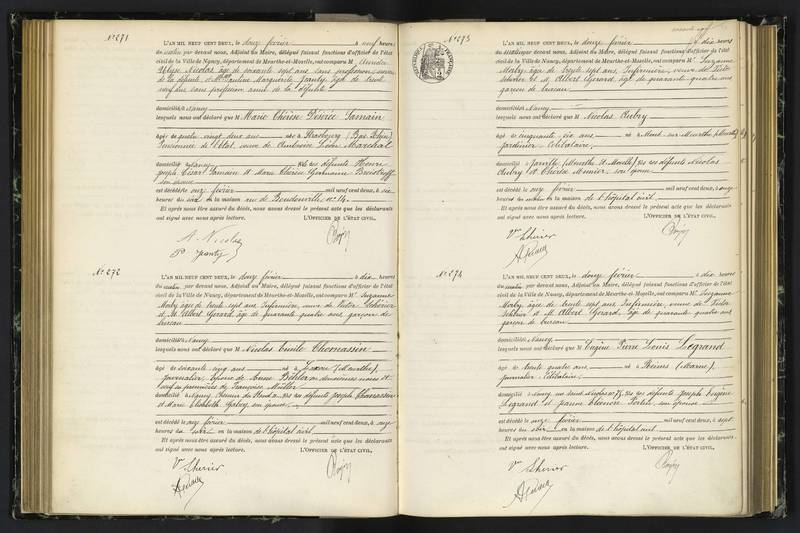 No 271
L'AN MIL NEUF CENT DEUX, le douze février à neuf heures
du matin par devant nous, Adjoint au Maire, délégué faisant fonctions d'officier de l'état
civil de la Ville de Nancy, département de Meurthe-et-Moselle, ont comparu M
Nicolas âgé de soixante sept ans sans profession
de la défunte et Marguerite âgé de
sans profession ami de la défunte
domiciliés à Nancy
lesquels nous ont déclaré que M Marie Thérèse Désirée Samain
âgé de quatre vingt deux ans né à Strasbourg (Bas Rhin)
Pensionnée de l'État, veuve de Ambroise Léon Marchal
domicilié à Nancy fille des défunts Henri
Joseph César Samain et Marie Thérèse Germaine
son épouse
est décédé le onze février mil neuf cent deux, à six
heures du soir en la maison rue de Boudonville no 14.
Et après nous être assuré du décès, nous avons dressé le présent acte que les déclarants
ont signé avec nous après lecture. L'OFFICIER DE L'ÉTAT CIVIL,
A. Nicolas
No 272
L'AN MIL NEUF CENT DEUX, le douze février à dix heures
du matin par devant nous, Adjoint au Maire, délégué faisant fonctions d'officier de l'état
civil de la Ville de Nancy, département de Meurthe-et-Moselle, ont comparu Me Suzanne
Marly âgée de trente sept ans Infirmière, veuve de Victor Lshérier
et M. Albert Gérard, âgé de quarante quatre ans, garçon de
bureau
domiciliés à Nancy
lesquels nous ont déclaré que M Nicolas Emile Thomassin
âgé de soixante cinq ans né à (Meurthe)
journalier, époux de Anne en deuxièmes noces et
veuf en premières de Françoise Müller
domicilié à Nancy, Chemin du fils des défunts Joseph Thomassin
et Marie Elisabeth son épouse
est décédé le onze février mil neuf cent deux, à onze
heures du soir en la maison de l'hôpital civil
Et après nous être assuré du décès, nous avons dressé le présent acte que les déclarants
ont signé avec nous après lecture. L'OFFICIER DE L'ÉTAT CIVIL,
Ve Lshérier
No 273
L'AN MIL NEUF CENT DEUX, le douze février à dix heures
du matin par devant nous, Adjoint au Maire, délégué faisant fonctions d'officier de l'état
civil de la Ville de Nancy, département de Meurthe-et-Moselle, ont comparu Me Suzanne
Marly âgée de trente sept ans, Infirmière, veuve de Victor
Lshérier et M. Albert Gérard, âgé de quarante quatre ans
garçon de bureau
domiciliés à Nancy
lesquels nous ont déclaré que M Nicolas Aubry
âgé de cinquante six ans né à Mont sur Meurthe (Meurthe)
jardinier célibataire,
domicilié à (Meurthe et Moselle) fils des défunts Nicolas
Aubry et Thérèse Munier, son épouse
est décédé le onze février mil neuf cent deux, à onze
heures du matin en la maison de l'hôpital civil
Et après nous être assuré du décès, nous avons dressé le présent acte que les déclarants
ont signé avec nous après lecture. L'OFFICIER DE L'ÉTAT CIVIL,
Ve Lshérier
No 274
L'AN MIL NEUF CENT DEUX, le douze février à dix heures
du matin par devant nous, Adjoint au Maire, délégué faisant fonctions d'officier de l'état
civil de la Ville de Nancy, département de Meurthe-et-Moselle, ont comparu Me Suzanne
Marly, âgée de trente sept ans, Infirmière, veuve de Victor
Lshérier et M. Albert Gérard, âgé de quarante quatre ans
garçon de bureau
domiciliés à Nancy
lesquels nous ont déclaré que M Eugène Pierre Louis Legrand
âgé de trente quatre ans, né à Reims (Marne)
journalier célibataire,
domicilié à Nancy, rue Saint Nicolas no 75, fils des défunts Joseph Eugène
Legrand et Jeanne Eléonore Fortin, son épouse
est décédé le onze février mil neuf cent deux, à sept
heures du soir en la maison de l'hôpital civil
Et après nous être assuré du décès, nous avons dressé le présent acte que les déclarants
ont signé avec nous après lecture. L'OFFICIER DE L'ÉTAT CIVIL,
Ve Lshérier